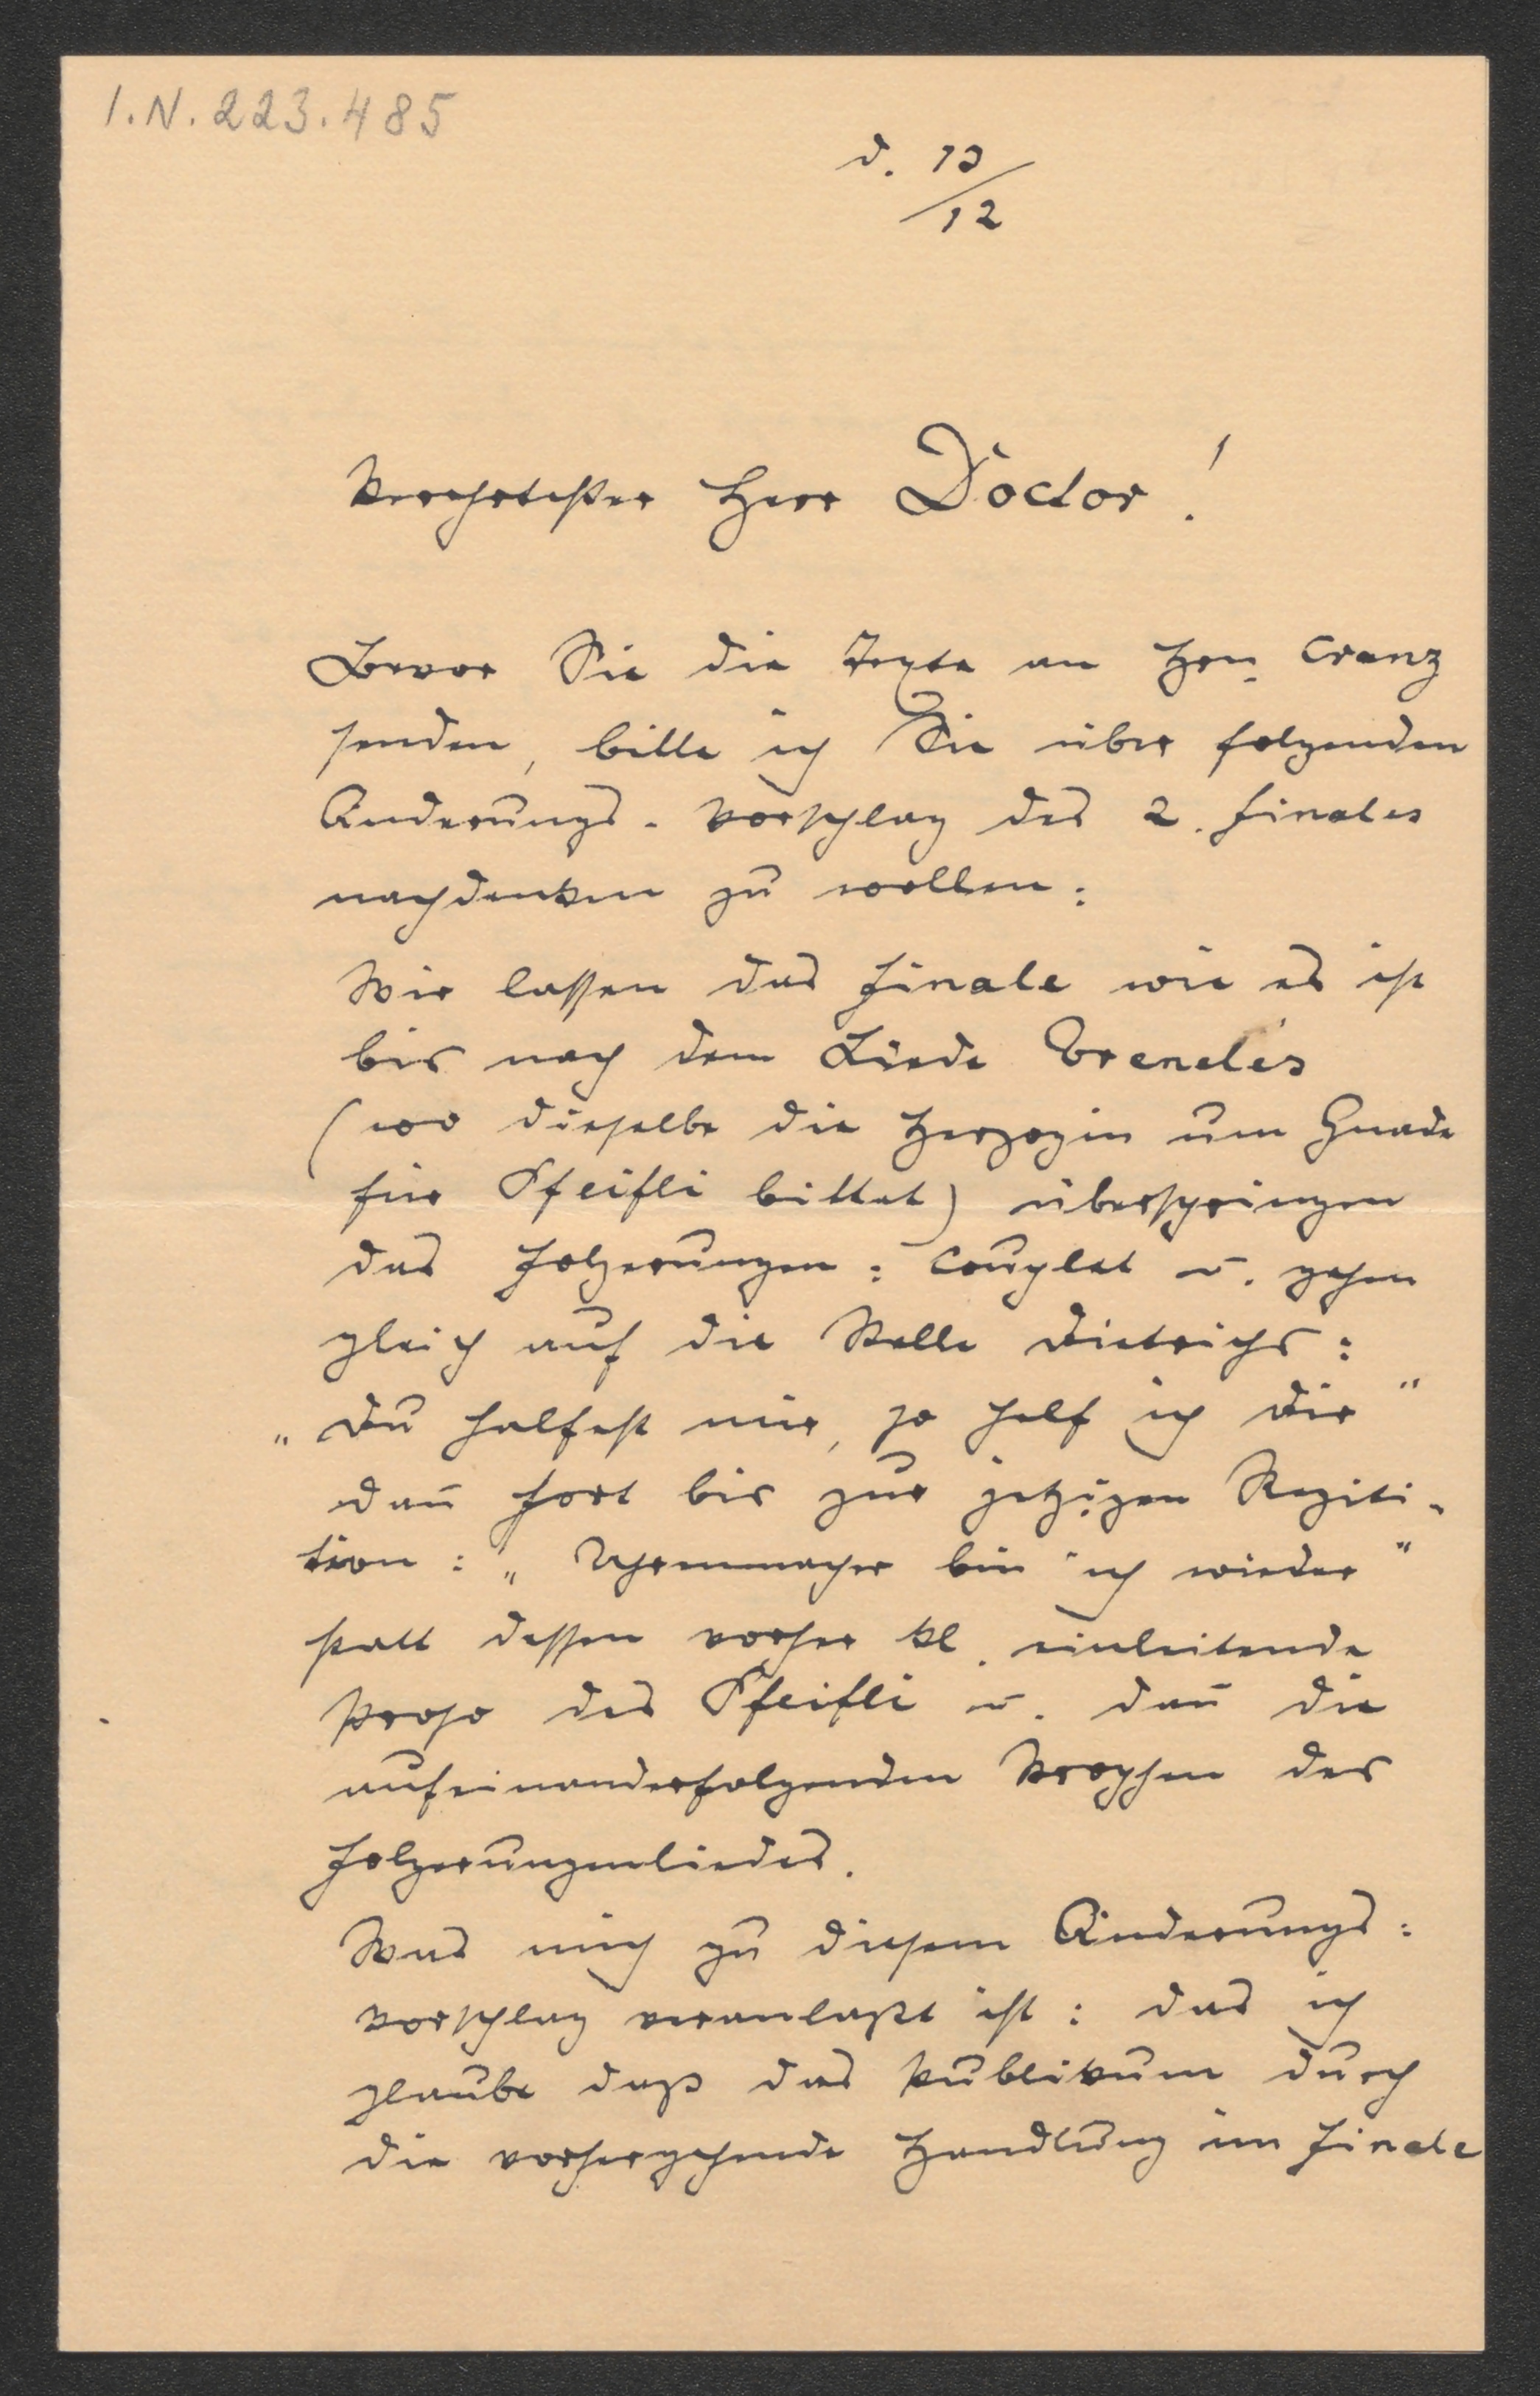 I.N. 223.485
d. 13/12
Verehrtester Herr Doctor!
Bevor Sie die Texte an Hrn Cranz
senden, bitte ich Sie über folgenden
Änderungs-Vorschlag des 2. Finales
nachdenken zu wollen:
Wir lassen das Finale wie es ist
bis nach dem Liede Vreneles
(wo dieselbe die Herzogin um Gnade
für Pfeifli bittet) überspringen
das Folgerungen: Couplet u. gehen
gleich auf die Stelle Dietrichs:
„Du halfest mir, so helf ich Dir"
dañ fort bis zur jetzigen Reziti-
tion: „Uhrenmacher bin ich wieder"
statt dessen vorher kl. einleitende
Prosa des Pfeifli u. dañ die
aufeinanderfolgenden Strophen des
Folgerungenliedes.
Was mich zu diesem Änderungs:
vorschlag veranlaßt ist: das ich
glaube daß das Publikum durch
die vorhergehende Handlung im Finale